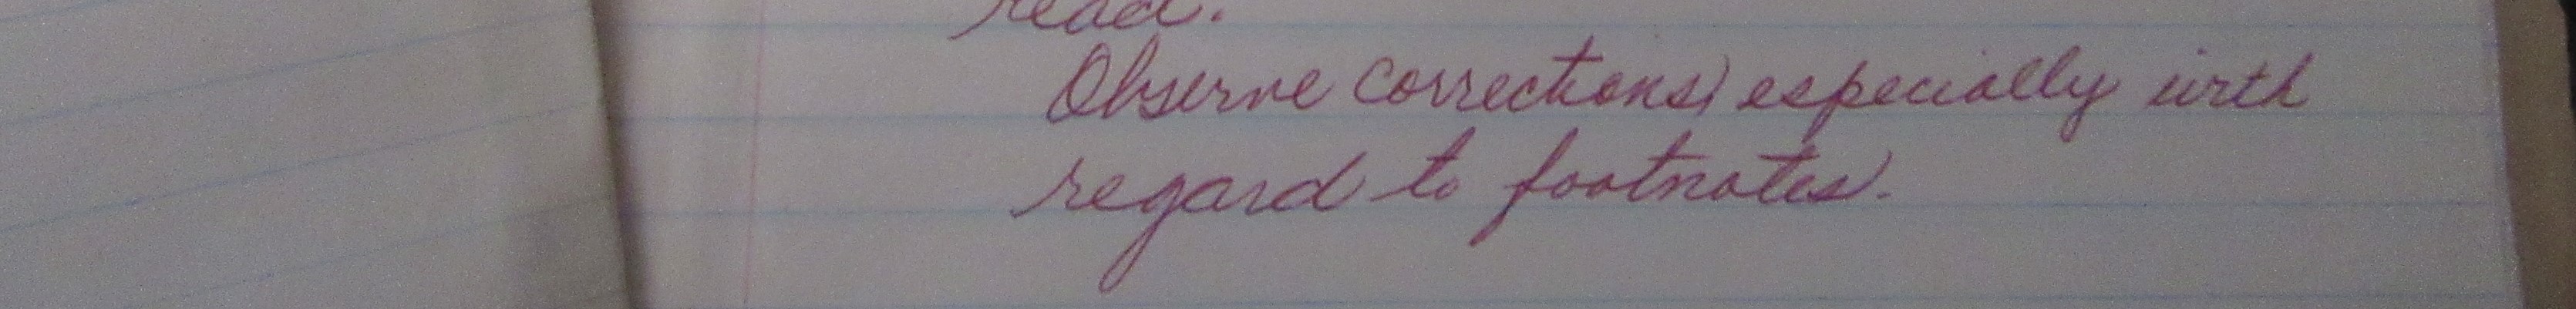 read.
Observe corrections, especially with
regard to footnotes.